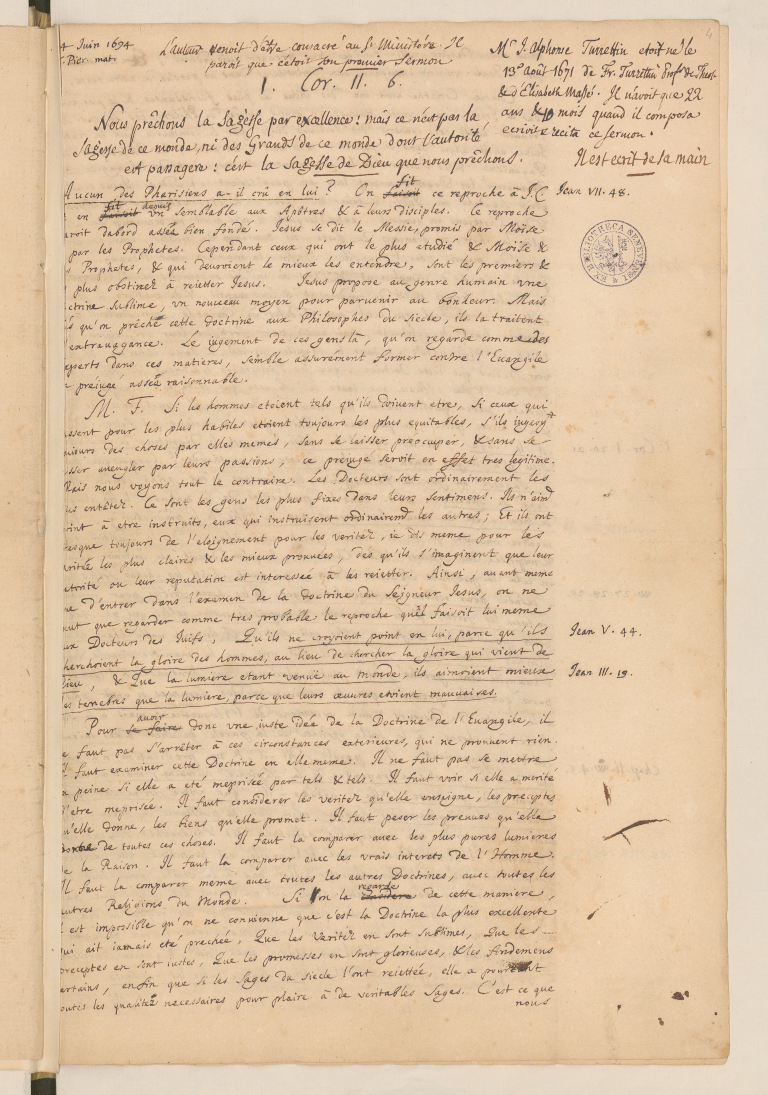 4 Juin 1694
St. Pier. mat.
L'auteur venoit d'être consacré au St Ministére. Il
paroit que c'étoit son premier Sermon
Mr J. Alphonse Turrettin etoit né le
13e août 1671 de Fr. Turrettin Prof. de Theol.
& d'Elisabeth Massé. Il n'avoit que 22
ans & 10 mois quand il composa
ecrivit & recita ce sermon.
Il est ecrit de sa main
I. Cor. II. 6.
Nous prêchons la Sagesse par excellence: mais ce n'est pas la
Sagesse de ce monde, ni des Grands de ce monde dont l'autorité
est passagere: c'est la Sagesse de Dieu que nous prêchons.
Aucun des Pharisiens a-il crû en lui? On fit faisoit ce reproche à J.C.
Jean VII. 48.
en fit faisoit depuis vn semblable aux Apôtres & à leurs disciples. Ce reproche
paroit dabord assez bien fondé. Jesus se dit le Messie, promis par Moïse
par les Prophetes. Cependant ceux qui ont le plus etudié & Moïse &
s Prophetes, & qui deuroient le mieux les entendre, sont les premiers &
plus obstinez à reietter Jesus. Jesus propose au genre humain vne
ctrine sublime, vn nouueau moyen pour paruenir au bonheur. Mais
s qu'on prêche cette doctrine aux Philosophes du Siecle, ils la traitent
extrauagance. Le iugement de ces gens là, qu'on regarde comme des
experts dans ces matieres, semble assurement former contre l'Euangile
prejugé assez raisonnable.
M. F. Si les hommes etoient tels qu'ils doiuent etre, si ceux qui
ssent pour les plus habiles etoient toujours les plus equitables, s'ils iugeoyt
miours des choses par elles memes, sans se laisser preoccuper, & sans se
sser aueugler par leurs passions, ce prejugé seroit en effet tres legitime.
Mais nous voyons tout le contraire. Les Docteurs sont ordinairement les
us entêtez. Ce sont les gens les plus fixes dans leurs sentimens. Ils n'aimt
oint à etre instruits, eux qui instruisent ordinairemt les autres; Et ils ont
esque toujours de l'eloignement pour les veritez, ie dis meme pour les
veritez les plus claires & les mieux prouuées, dés qu'ils s'imaginent que leur
utorité ou leur reputation est interessée à les reietter. Ainsi, auant meme
ue d'entrer dans l'examen de la doctrine du Seigneur Jesus, on ne
eut que regarder comme tres probable le reproche qu'il faisoit lui meme
ux Docteurs des Juifs, Qu'ils ne croyoient point en lui, parce qu'ils
Jean V. 44.
cherchoient la gloire des hommes, au lieu de chercher la gloire qui vient de
Dieu, & Que la lumiére etant venüe au monde, ils aimoient mieux
Jean III. 19.
les tenebres que la lumiére, parce que leurs oeuures etoient mauuaises.
Pour auoir se faire donc vne iuste idée de la Doctrine de l'Euangile, il
e faut pas s'arrêter à ces circonstances exterieures, qui ne prouuent rien.
Il faut examiner cette Doctrine en elle meme. Il ne faut pas se mettre
n peine si elle a eté meprisée par tels & tels. Il faut voir si elle a merité
d'etre meprisée. Il faut considerer les veritez qu'elle enseigne, les preceptes
qu'elle donne, les biens qu'elle promet. Il faut peser les preuues qu'elle
de toutes ces choses. Il faut la comparer auec les plus pures lumieres
de la Raison. Il faut la comparer auec les vrais interets de l'Homme.
Il faut la comparer meme auec toutes les autres Doctrines, auec toutes les
autres Religions du Monde. Si l'on la regarde de cette maniere,
l est impossible qu'on ne conuienne que c'est la Doctrine la plus excellente
qui ait iamais eté prechée, Que les veritez en sont sublimes, Que les
preceptes en sont iustes, Que les promesses en sont glorieuses, & les fondemens
certains, enfin que si les Sages du siecle l'ont reiettée, elle a pourtant
toutes les qualitez necessaires pour plaire à de veritables Sages. C'est ce que
nous